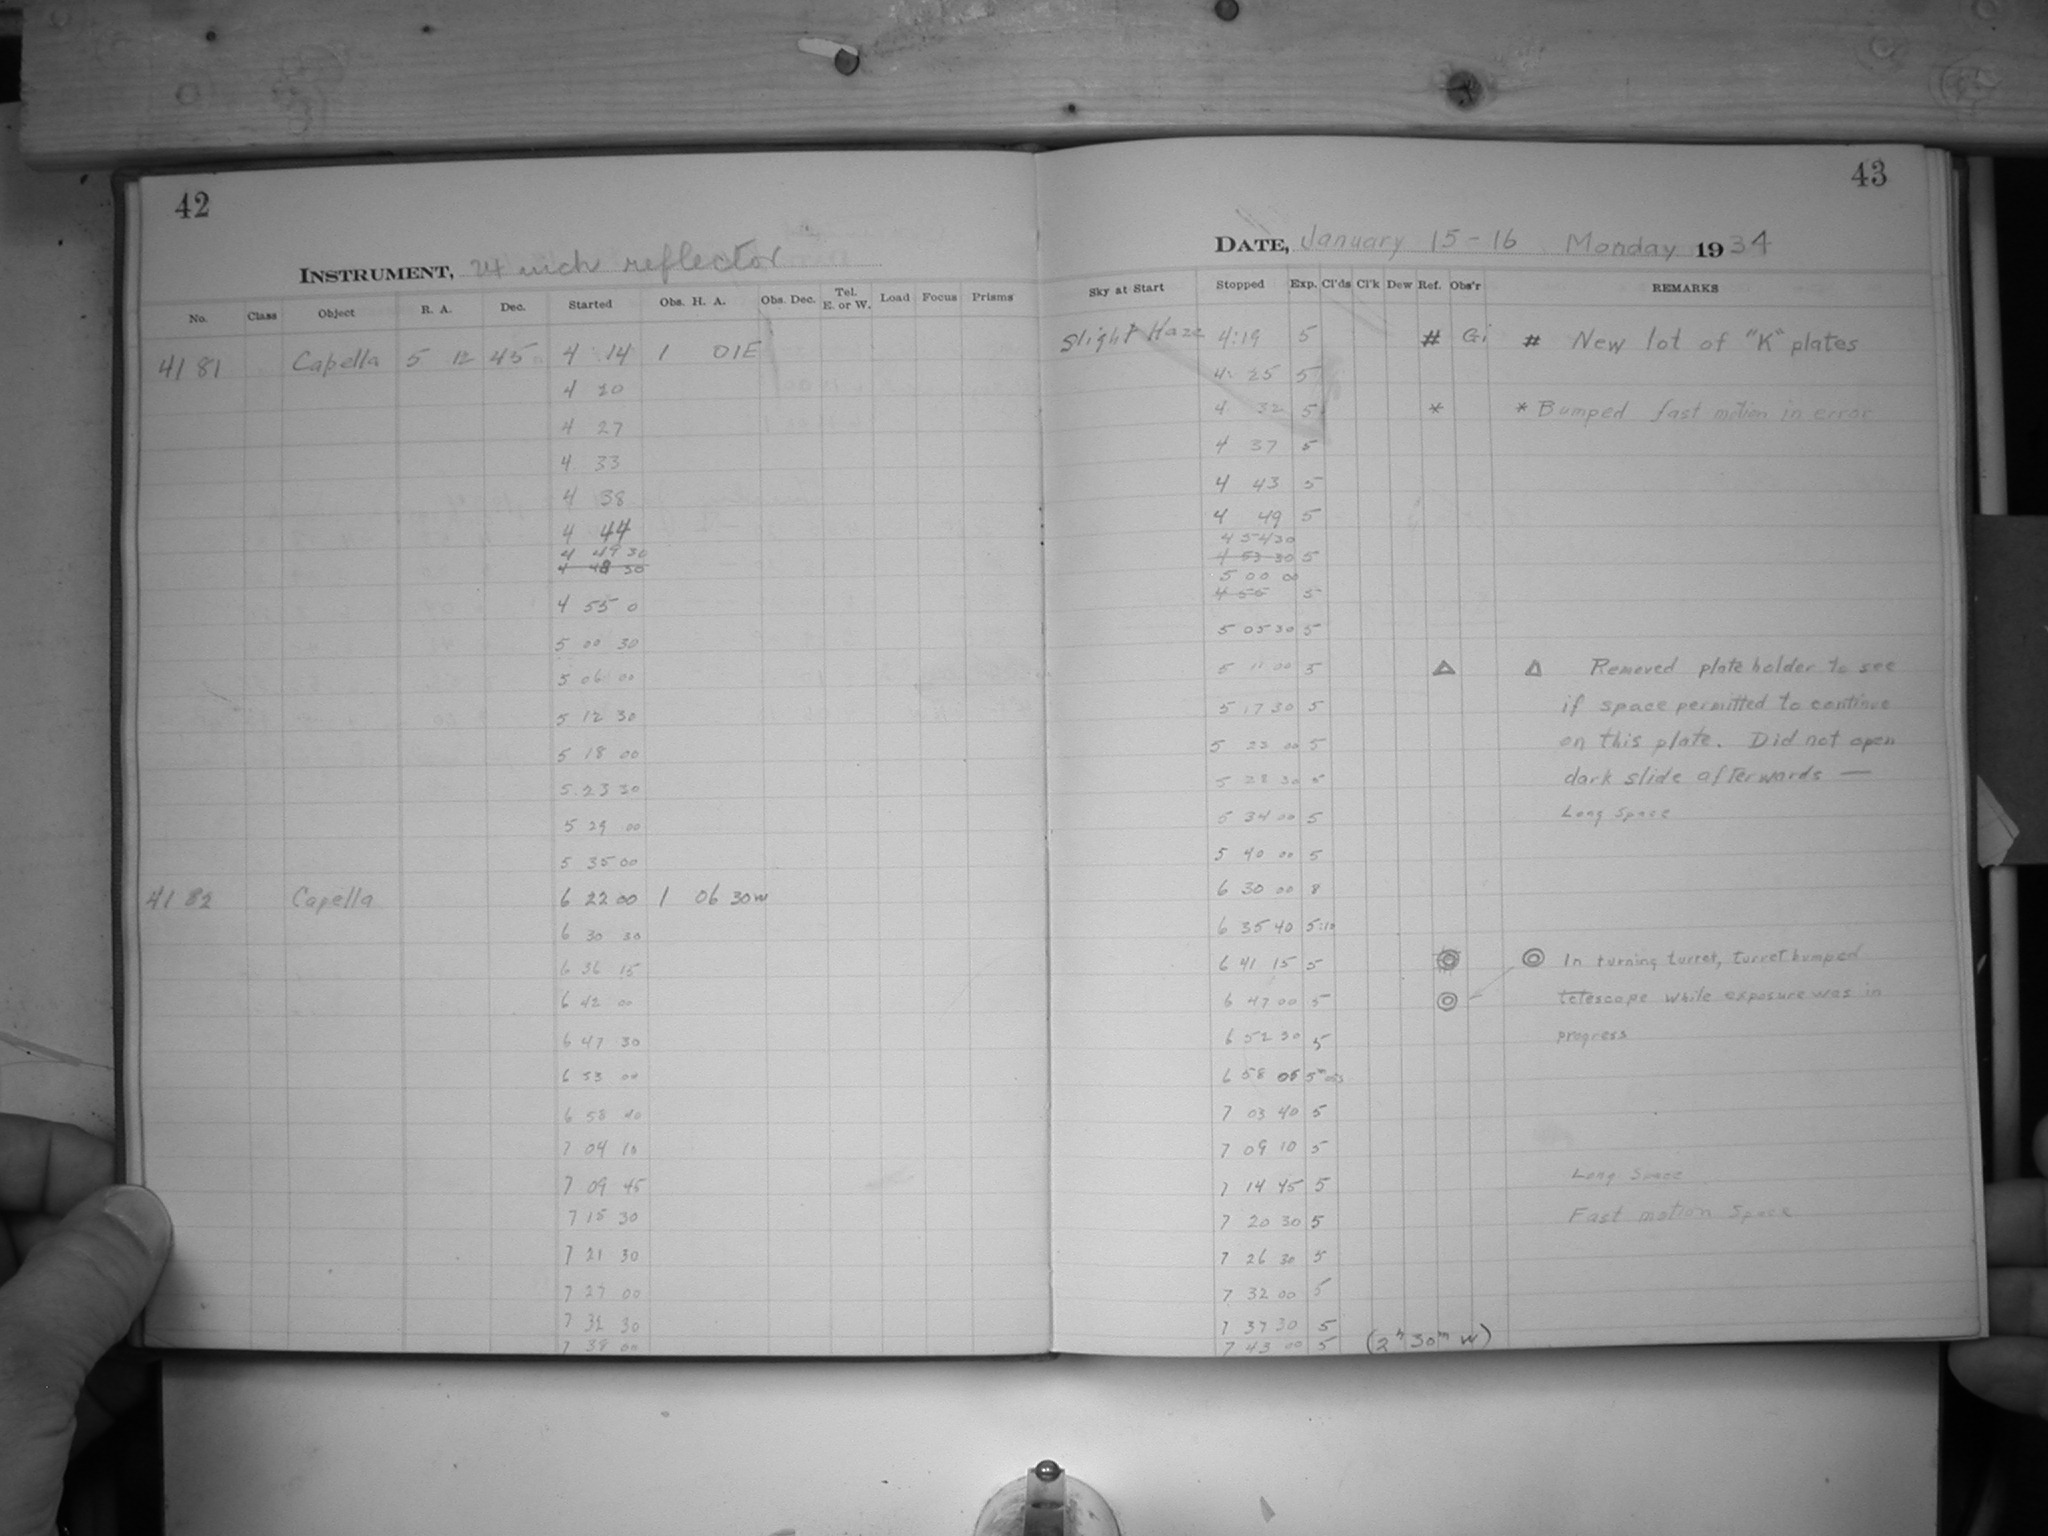 42
INSTRUMENT, 24 inch reflector
No. Class Object R. A. Dec. Started Obs. H. A. Obs. Dec. Tel. E. or W. Load Focus Prisms
4181 Capella 5 12 45 4 14 1 01E
4 20
4 27
4 33
4 38
4 44
4 49 30
4 48 30
4 55 0
5 00 30
5 06 00
5 12 30
5 18 00
5 23 30
5 29 00
5 35 00
4182 Capella 6 22 00 1 06 30W
6 30 30
6 36 15
6 42 00
6 47 30
6 53 00
6 58 40
7 04 10
7 09 45
7 15 30
7 21 30
7 27 00
7 32 30
7 38 00
43
DATE, January 15-16 Monday 1934
Sky at Start Stopped Exp. Cl'ds Cl'k Dew Ref. Obs'r REMARKS
Slight Haze 4:19 5 # Gi # New lot of "K" plates
4: 25 5
4 32 5 * * Bumped fast motion in error
4 37 5
4 43 5
4 49 5
4 54 30
4 53 30 5
5 00 00
4 55 5
5 05 30 5
5 11 00 5 △ △ Removed plate holder to see
5 17 30 5 if space permitted to continue
5 23 00 5 on this plate. Did not open
5 28 30 5 dark slide afterwards —
5 34 00 5 Long Space
5 40 00 5
6 30 00 8
6 35 40 5:10
6 41 15 5 ◎ ◎ In turning turret, turret bumped
6 47 00 5 ◎ telescope while exposure was in
6 52 30 5 progress
6 58 05 5m 05s
7 03 40 5
7 09 10 5
7 14 45 5 Long Space
7 20 30 5 Fast motion Space
7 26 30 5
7 32 00 5
7 37 30 5
7 43 00 5 (2h 30m W)